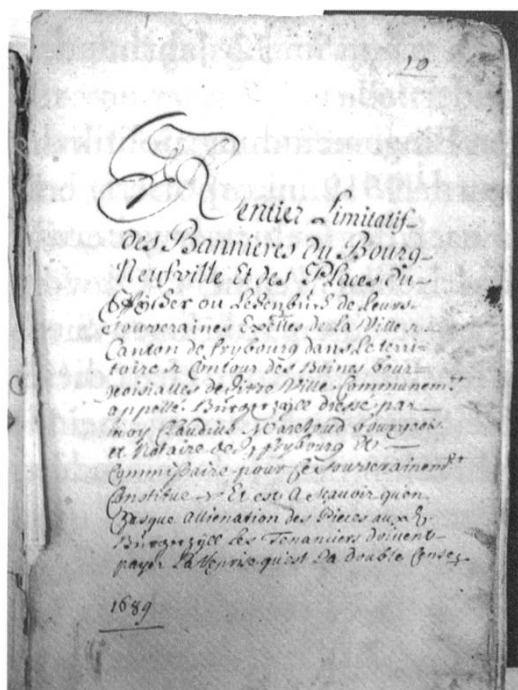 10
Rentier Limitatif
des Bannieres du Bourg
Neufville Et des Places du
ou de Leurs
Souveraines Excelles de la Ville &
Canton de frybourg dans Le terri-
toire & Contour des Boines Bour-
geoisialles de ditte Ville Communemt
appellé Burgerzihl dressé par
moy Claudius bourgeois
et Notaire de frybourg &
Commissaire pour ce Souverainemt
Constitue & Et est A scavoir quen
Chasque Allienation des Pieces au
Burgerzihl Les Tenanciers doivent
payer La Reprise qu'est La double Cense
1689